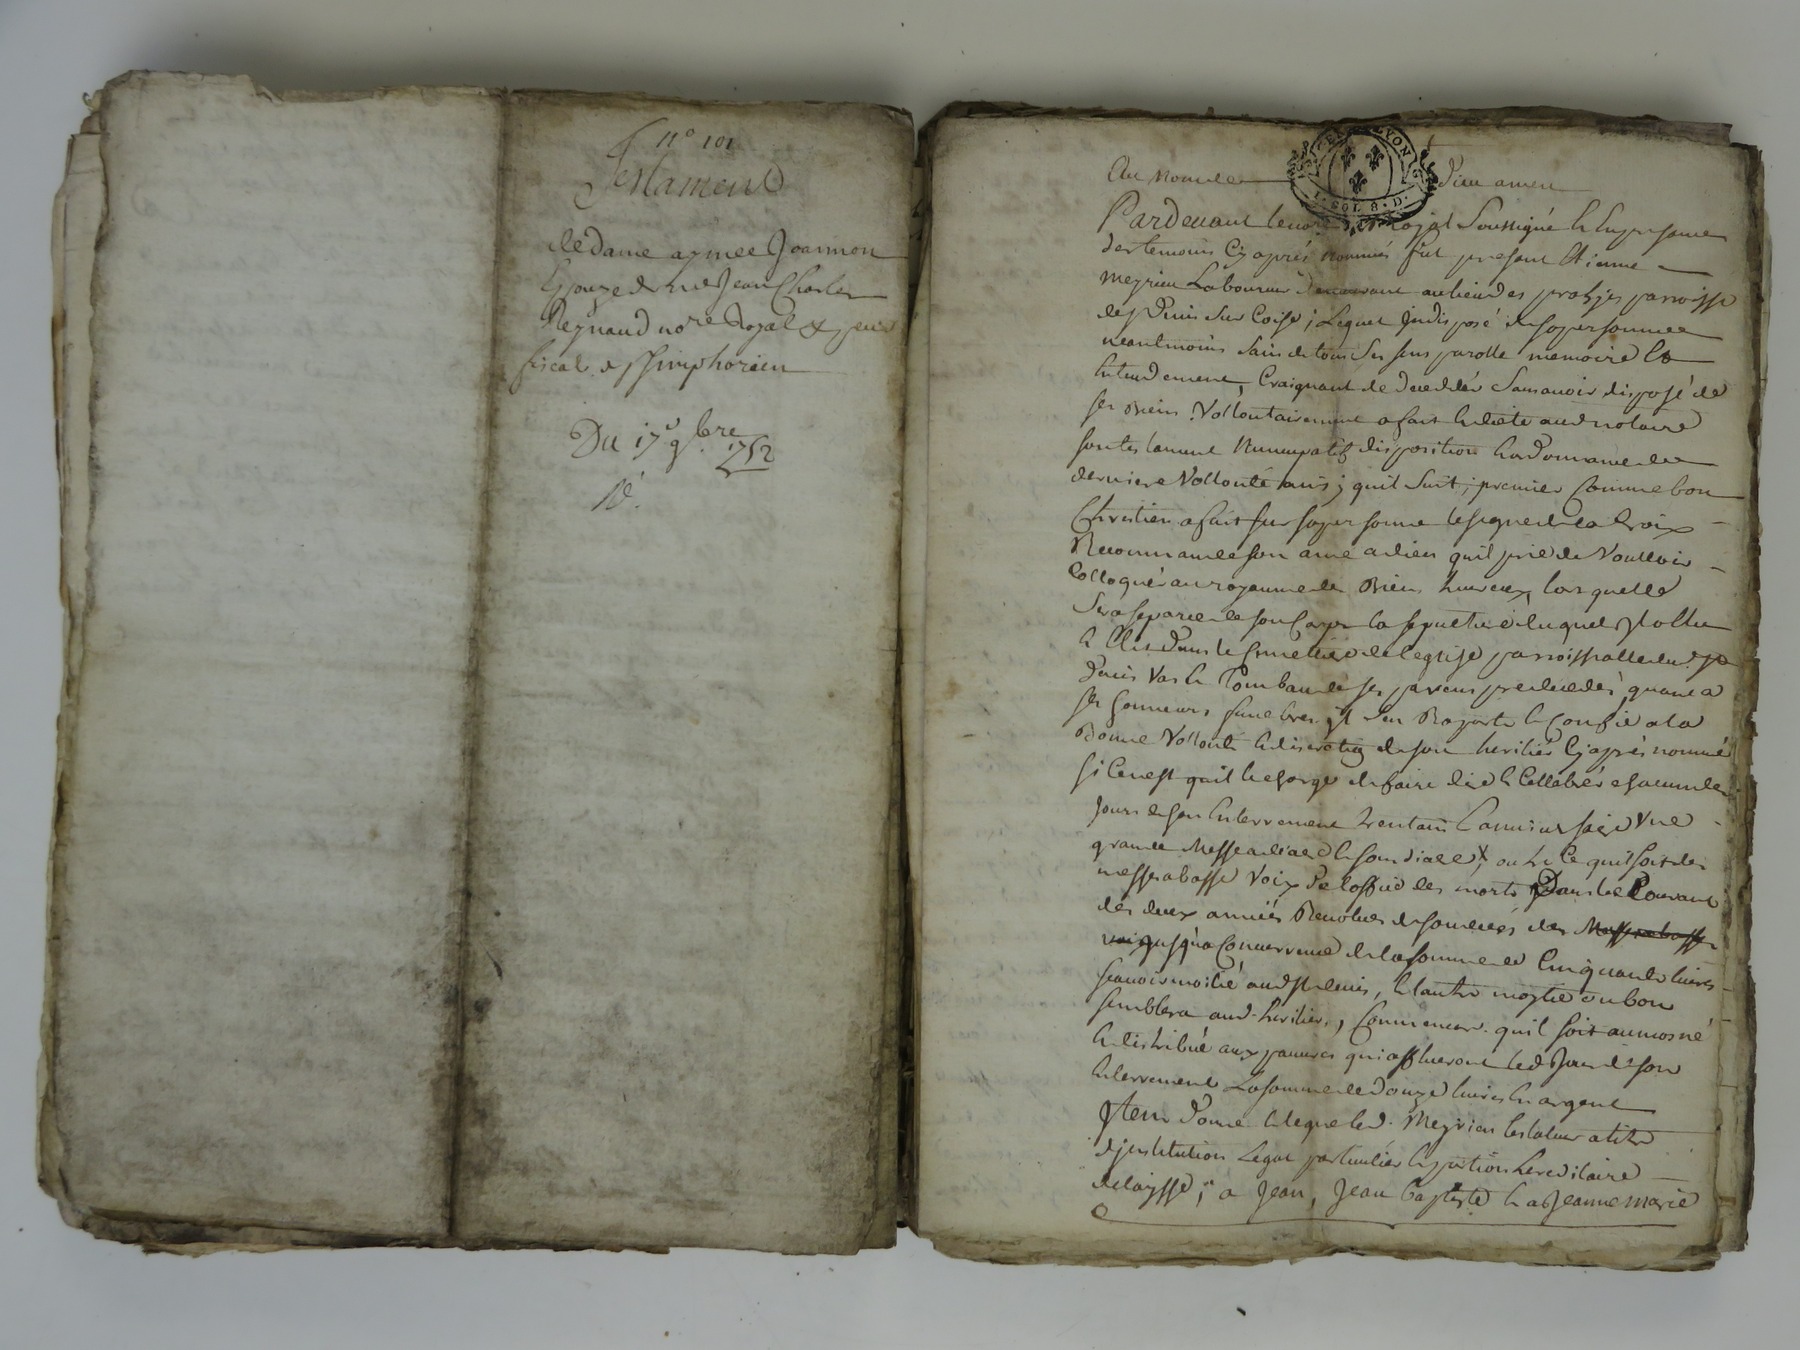 n° 101
Testament
de dame aymee Joannon
Epouze de me Jean Charles
Reynaud nore Royal & pcur
fiscal de st Simphorien
Du 17e 9bre 1752
Au nom de Dieu amen
GEN LYON
1 SOL 8 D
Pardevant le nore Royal Soussigné Et En presance
des temoins Cy après nommés fut present Etienne
meyrieu Laboureur demeurant au lieu des parroisse
de st Denis sur Coise ; Lequel Indisposé de sa personne
neantmoins sain de tous ses sens parolle memoire Et
Entendement, Craignant de deceddér Sans avoir disposé de
ses Biens Vollontairement a fait Et dicté aud notaire
son testament Nuncupatif disposition Et ordonnance de
derniere Vollonté ainsj quil suit ; premier Comme bon
Chrestien a fait sur sa personne le signe de la Croix
Recommande son ame a dieu quil prie de Voulloir
Colloquér au royaume des Bien heureux, lors quelle
sera separee de son Corps la sepulture duquel Il ellu
Et Elit dans le Cimetiere de leglise parroissialle dud st
denis Vas Et Tombau de ses parens predecedés, quant a
ses honneurs funebres il sen Raporte Et Confie a la
Bonne Vollonté Et discretion de son heritiér Cy après nommé
si Cenest quil le charge de faire dire Et Cellebrér chacun des
jours de son Enterrement trentain Et annivers saire Une
grande Messe a diacre Et soudiacre, outre Ce quil soit des
messes a basse Voix de loffice des morts Dans le Courant
des deux années Revolues de son deces des Messes a basse
voix jusqua Concurrence de la somme de Cinquante livres
scavoir moitié aud st denis, Et lautre moytié ou bon
semblera aud. heritier, Comme encor quil soit aumosné
Et distribué aux pauvres qui afflueront led Jour de son
Enterrement La somme de Douze livres En argent
Item donne Et legue led. Meyrieu testateur a titre
dinstitution Legat particuliér Et portion hereditaire
delaysse, a Jean, Jean baptiste Et a Jeanne marie